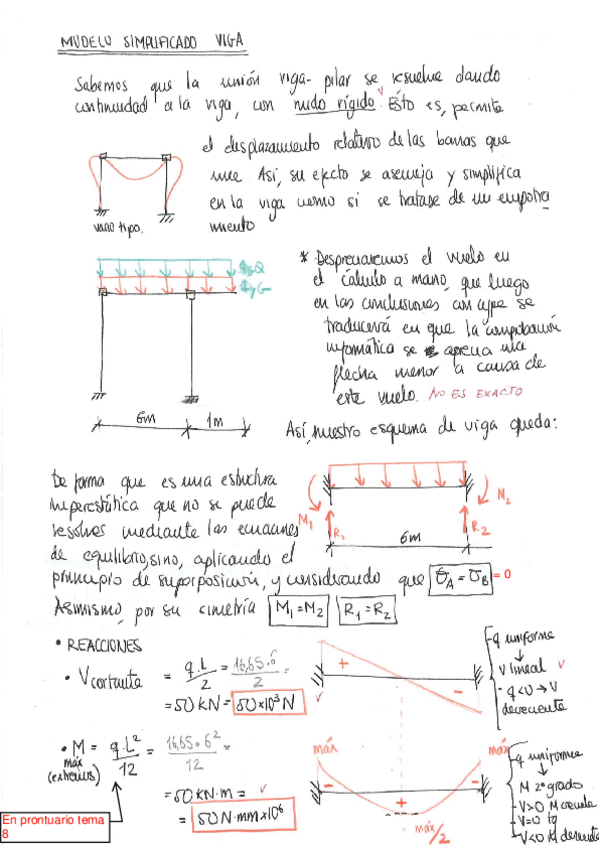 MODELO SIMPLIFICADO VIGA
Sabemos que la unión viga-pilar se resuelve dando
continuidad a la viga, con nudo rígido. Ésto es, permite
el desplazamiento relativo de las barras que
une. Así, su efecto se asemeja y simplifica
en la viga como si se tratase de un empotra
miento
vano tipo.
* Despreciaremos el vuelo en
el cálculo a mano, que luego
en las conclusiones con cype se
traducerá en que la computación
informática se aprecia una
flecha menor a causa de
este vuelo. NO ES EXACTO
6m
1m
Así, nuestro esquema de viga queda:
De forma que es una estructura
hiperestática que no se puede
resolver mediante las ecuaciones
de equilibrio, sino, aplicando el
principio de superposición, y considerando que θA = θB = 0
Asimismo, por su cimetría M1=M2 R1=R2
M1
R1
6m
R2
M2
• REACCIONES
• Vcortante = q.L/2 = 16,65.6/2 =
= 50 kN = 50×10³ N
+
-
q uniforme
V lineal
q<0 → V
decreciente
• M máx (extremos) = q.L²/12 = 16,65.6²/12 =
= 50 kN.m =
= 50 N.mm×10⁶
máx
máx
-
+
-
máx/2
q uniforme
M 2º grado
V>0 M creciente
V=0 tg
V<0 M decreciente
En prontuario tema
8